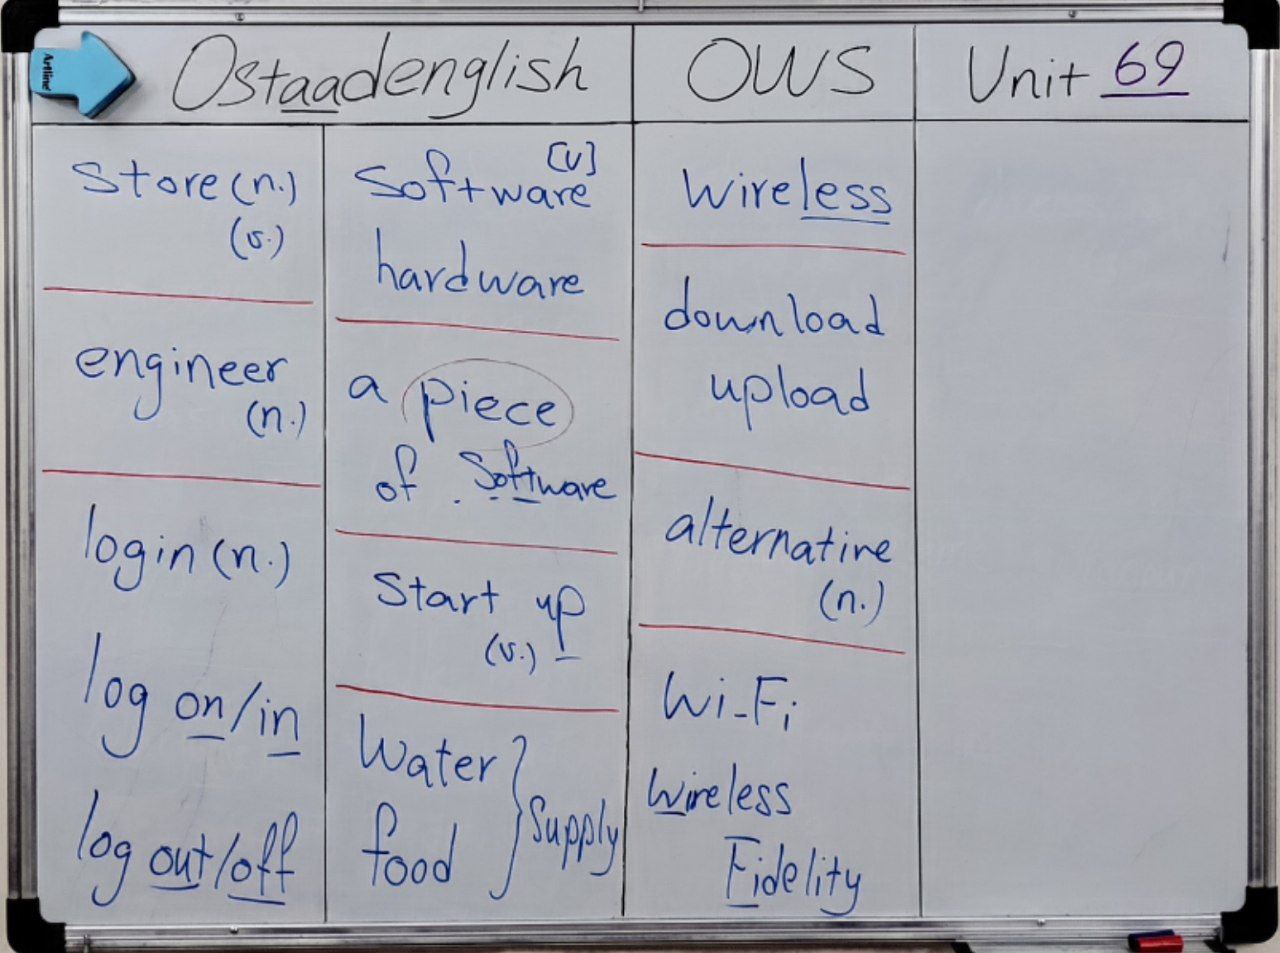 Ostaadenglish OWS Unit 69
store (n.)
(v.)
engineer
(n.)
login (n.)
log on/in
log out/off
[U]
Software
hardware
a piece
of Software
Start up
(v.)
Water
food
Supply
wireless
download
upload
alternative
(n.)
Wi-Fi
Wireless
Fidelity
Artline